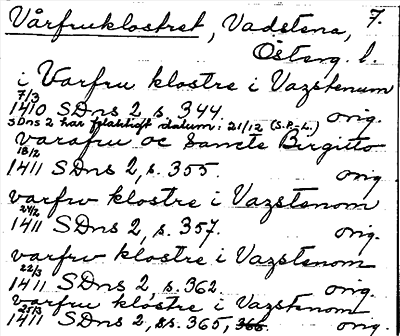 Vårfruklostret, Vadstena, 7.
Österg. l.
i Varfru klostre i Vazstenum
7/3
1410 SDns 2 s. 344. orig.
SDns 2 har felaktigt datum: 21/12 (S.P.-L.)
varafru oc Sancte Birgitto
18/2
1411 SDns 2, s. 355. orig
varfrv klostre i Vazstenom
24/2
1411 SDns 2, s. 357. orig.
varfrv klostre i Vazstenom
22/3
1411 SDns 2, s. 362. orig.
varfru klostre i Vazstenom
25/3
1411 SDns 2, ss. 365, 366. orig.